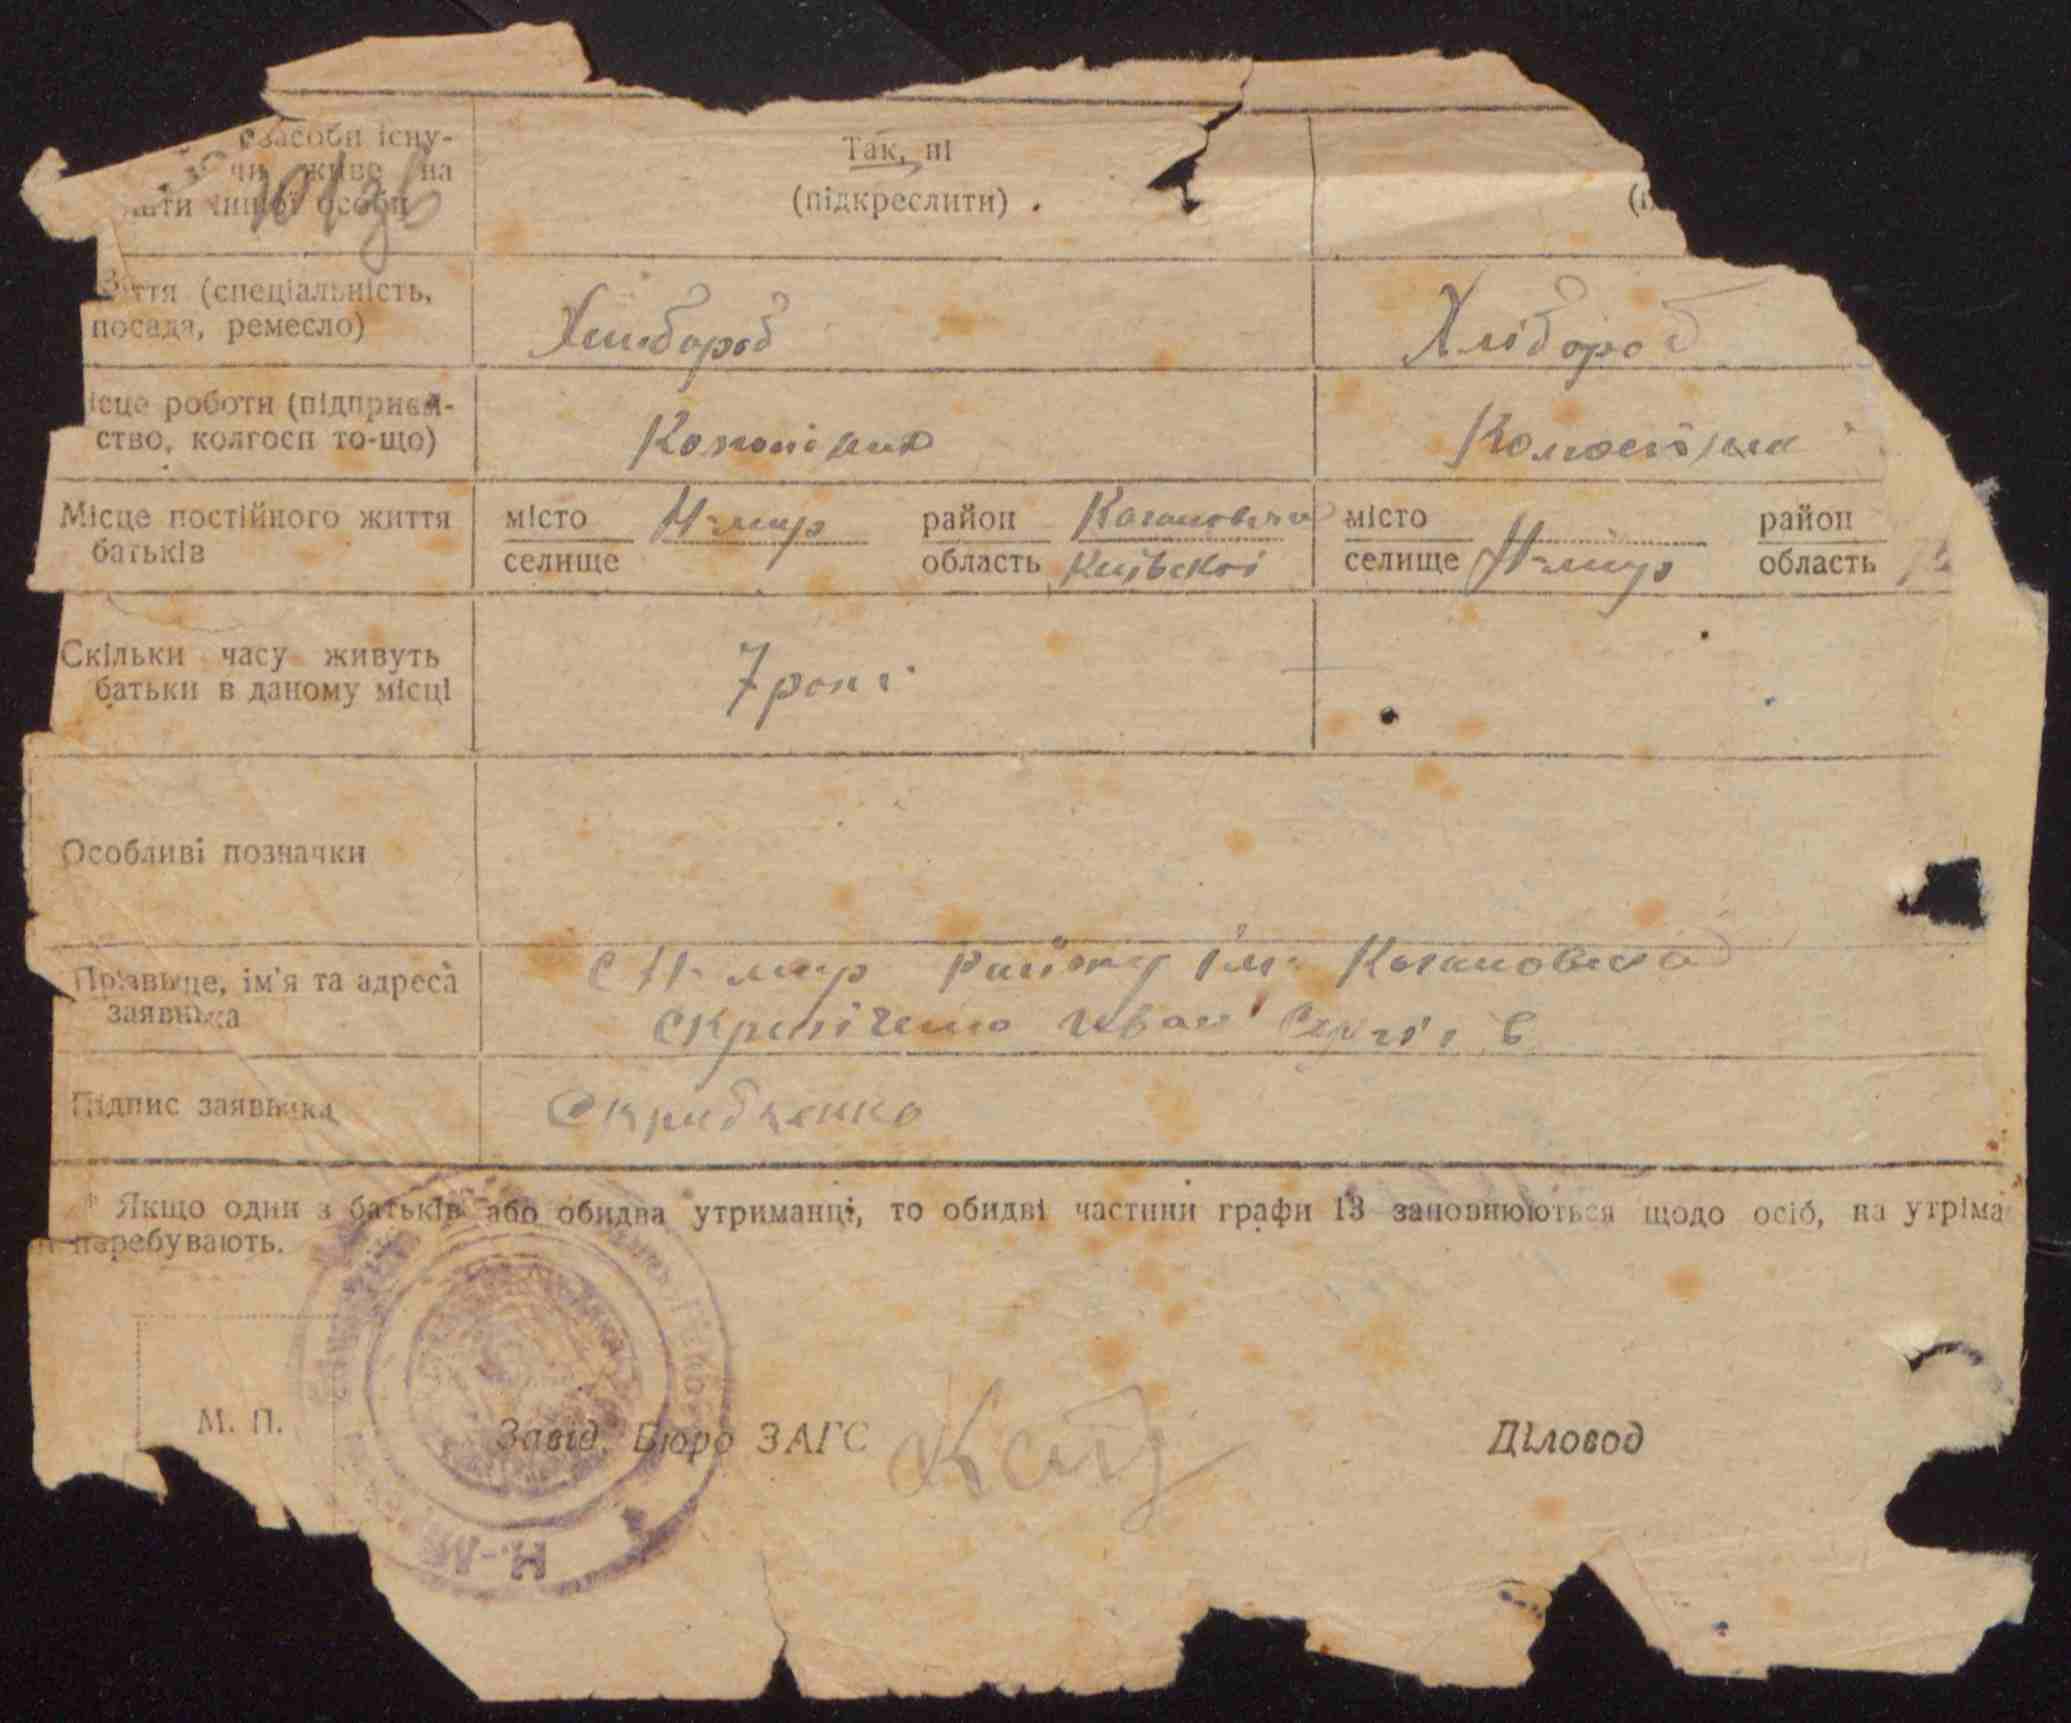 засоби існу-
чи живе на
іншої особи
Так, ні
(підкреслити)
ття (спеціальність,
посада, ремесло)
Хлібороб
Хлібороб
ісце роботи (підприєм-
ство, колгосп то-що)
Місце постійного життя
батьків
місто
селище
Н-мир
район
область
Кагановича
Київскої
місто
селище
Н-мир
район
область
Скільки часу живуть
батьки в даному місці
7 роки
Особливі позначки
Прізвище, ім'я та адреса
заявника
с Н-мир району ім. Кагановича
Іван
Підпис заявника
Скрибченко
* Якщо один з батьків або обидва утриманці, то обидві частини графи 13 заповнюються щодо осіб, на утріма
перебувають.
М. П.
Завід. Бюро ЗАГС
Діловод
Н.-М